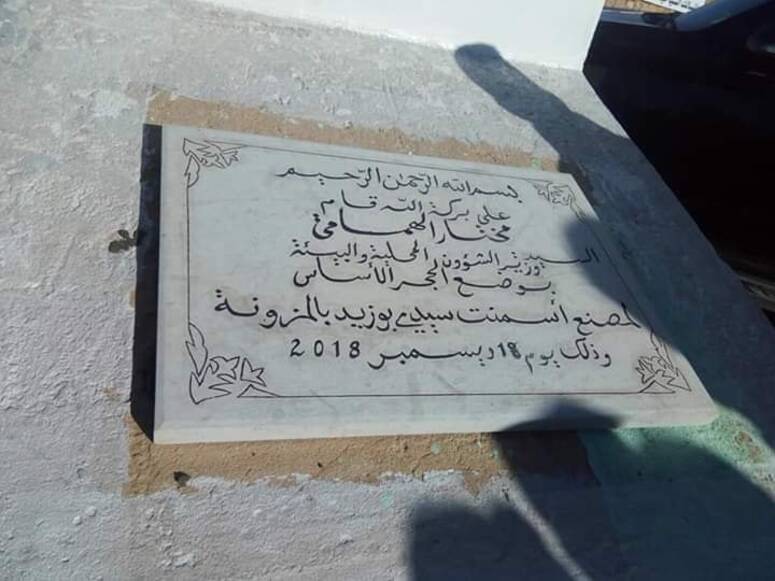 بسم الله الرّحمٰن الرّحيم
على بركة الله قام
السيد مختار الهمامي
وزير الشؤون المحلية والبيئة
بوضع الحجر الأساسي
لمصنع أسمنت سيدي بوزيد بالمزونة
وذلك يوم 18 ديسمبر 2018